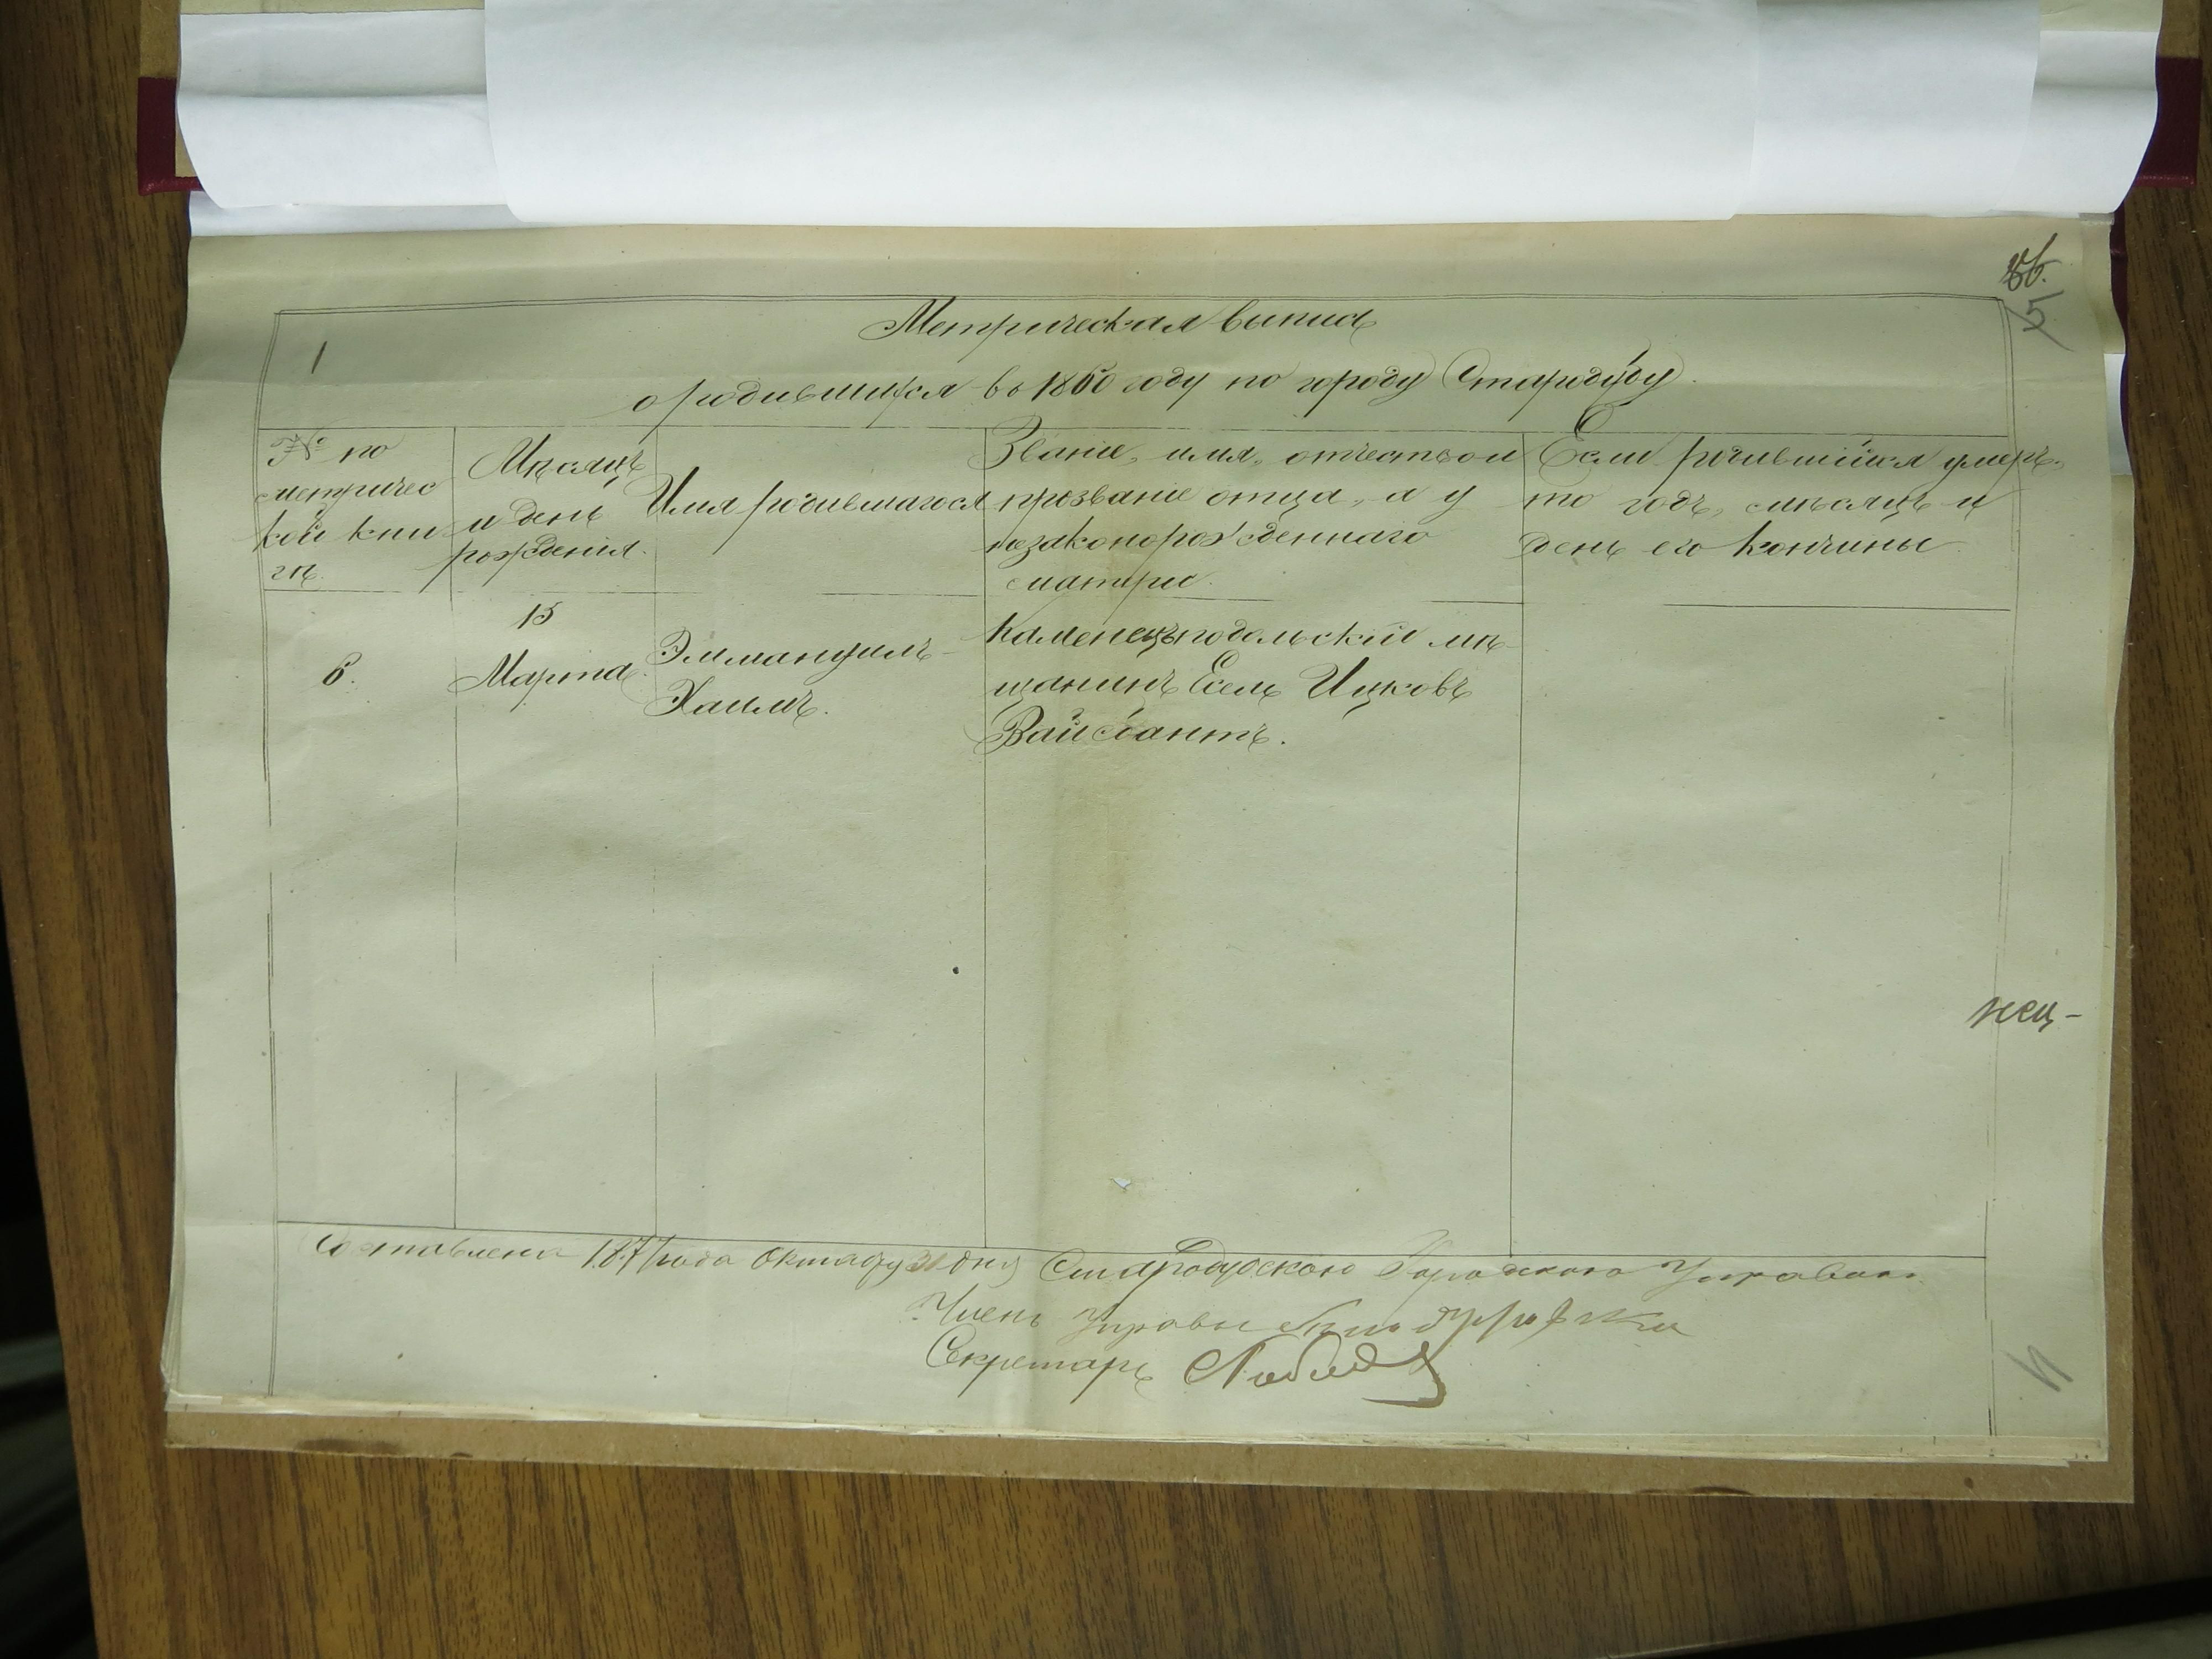 5
1
Метрическая выпись
о родившихся в 1860 году по городу Стародубу.
№ по
метричес
кой кни
гѣ.
Мѣсяцъ
и день
рожденія.
Имя родившагося
Званіе, имя, отчество и
прозваніе отца, а у
незаконорожденнаго
матери.
Если родившійся умеръ,
то годъ, мѣсяцъ и
день его кончины
6.
15
Марта
Эммануилъ-
Хаимъ.
Каменецъподольскій мѣ-
щанинъ Есель Ицковъ
Вайсбантъ.
Составлена 1877 года Октября 31 дня Стародубскою Городскою Управою.
Членъ Управы
Секретарь